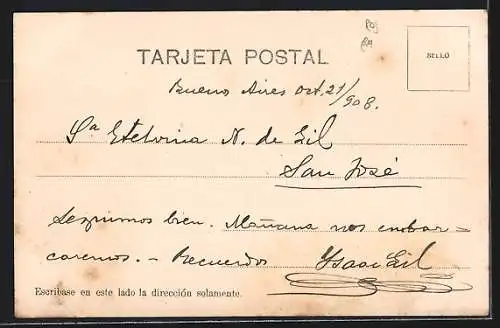 TARJETA POSTAL
SELLO
Bueno Aires Oct. 21/908.
Sa Etelvina N. de Gil
San José
Seguimos bien. Mañana nos embar=
caremos. - Recuerdos Ysaac Gil
Escríbase en este lado la dirección solamente.